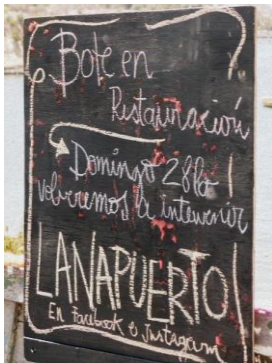 Bote en
Restauración
Domingo 28
volveremos a intervenir
LANAPUERTO
En facebook e Instagram